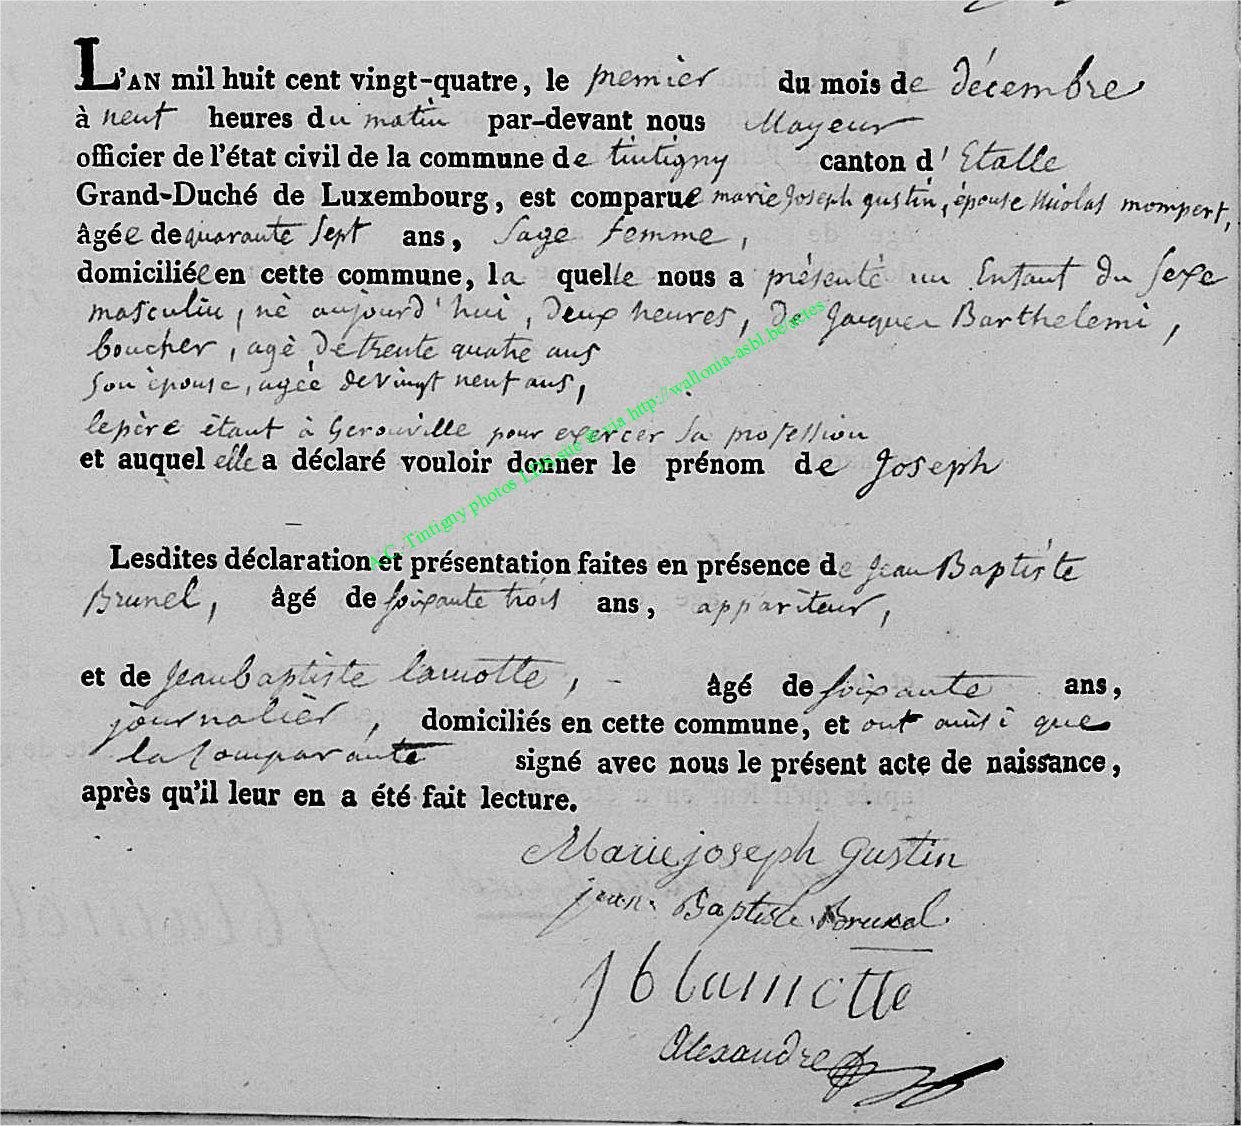 L'AN mil huit cent vingt-quatre, le premier du mois de décembre
à neuf heures du matin par-devant nous Mayeur
officier de l'état civil de la commune de tintigny canton d'Etalle
Grand-Duché de Luxembourg, est comparue marie Joseph gustin, épouse Nicolas mompert,
âgée de quarante sept ans, Sage femme,
domiciliée en cette commune, la quelle nous a présenté un Enfant du Sexe
masculin, né aujourd'hui, deux heures, de Jacques Barthelemi,
boucher, agé de trente quatre ans
son épouse, agée de vingt neuf ans,
le père étant à Gerouville pour exercer sa profession
et auquel elle a déclaré vouloir donner le prénom de Joseph
A.C. Tintigny photos LDS sur site via http://wallonia-asbl.be/actes
Lesdites déclaration et présentation faites en présence de Jean Baptiste
Brunel, âgé de soixante trois ans, appariteur,
et de Jean baptiste lamotte, - âgé de soixante ans,
journalier, domiciliés en cette commune, et ont ainsi que
la Comparante signé avec nous le présent acte de naissance,
après qu'il leur en a été fait lecture.
Marie joseph gustin
jean Baptiste Brunel
J b lamotte
Alexandre